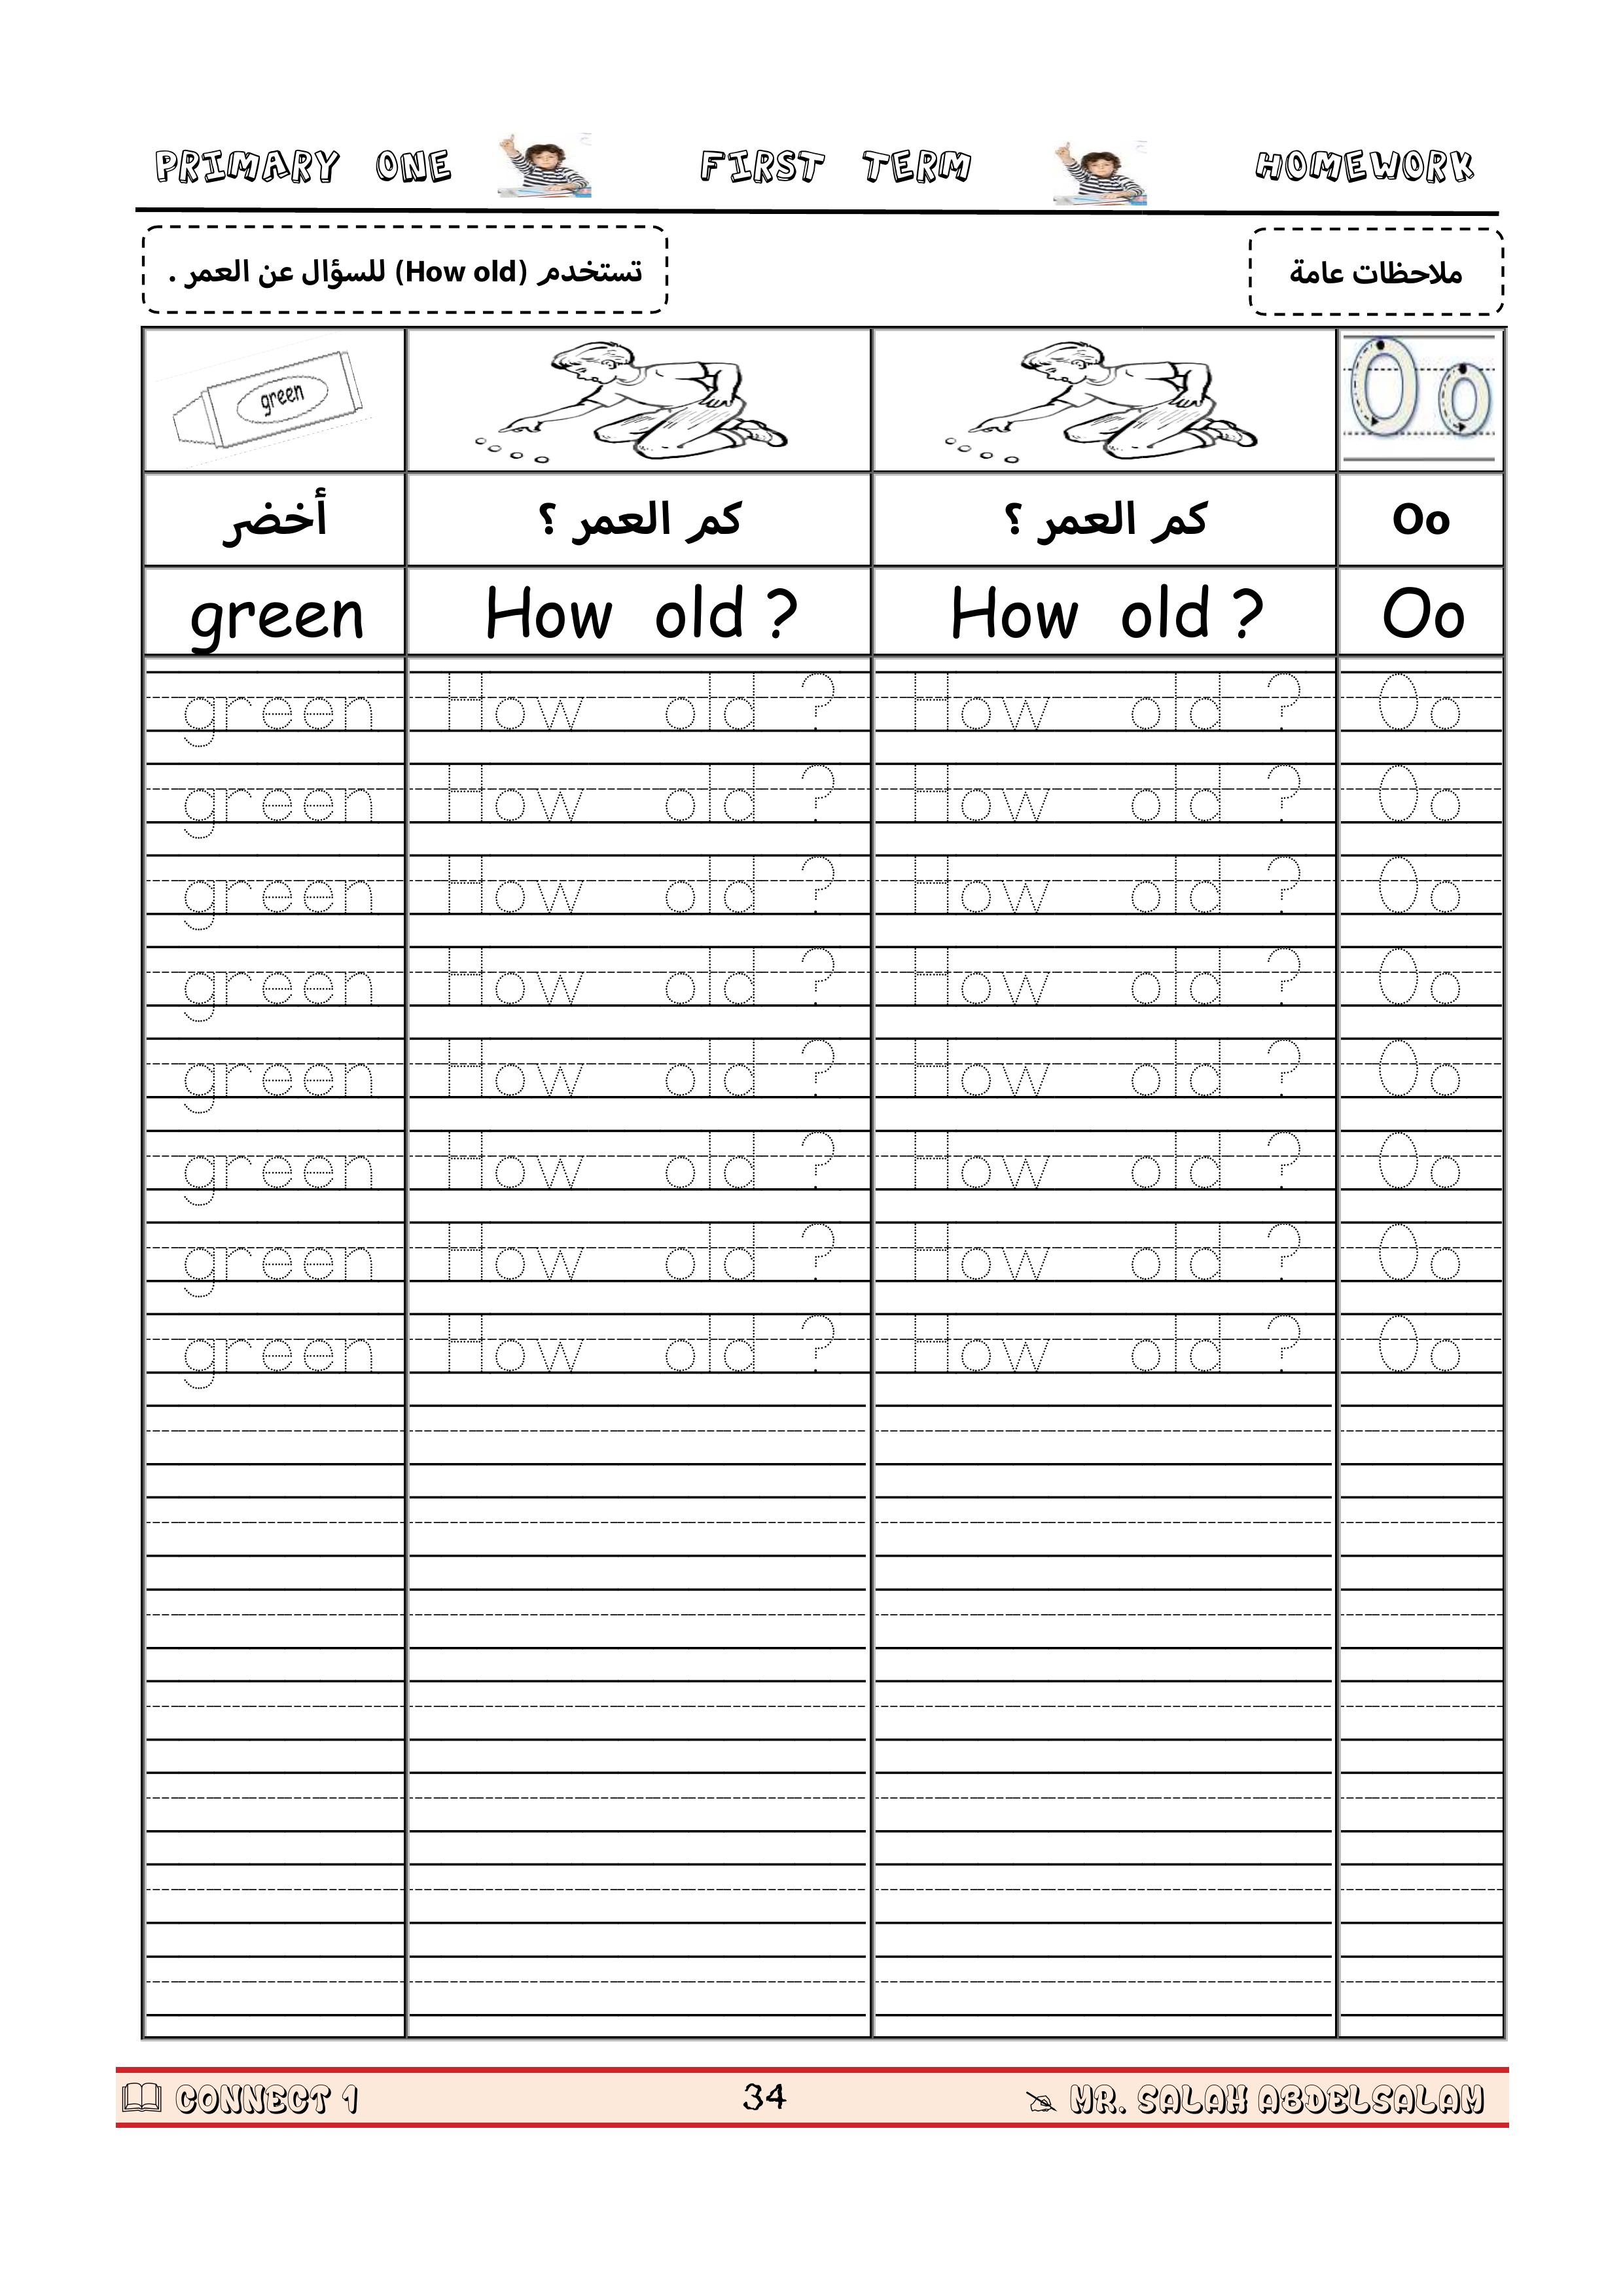 PRIMARY ONE FIRST TERM HOMEWORK
ملاحظات عامة
تستخدم (How old) للسؤال عن العمر .
green
أخضر كم العمر ؟ كم العمر ؟ Oo
green How old ? How old ? Oo
green How old ? How old ? Oo
green How old ? How old ? Oo
green How old ? How old ? Oo
green How old ? How old ? Oo
green How old ? How old ? Oo
green How old ? How old ? Oo
green How old ? How old ? Oo
green How old ? How old ? Oo
CONNECT 1 34 MR. SALAH ABDELSALAM